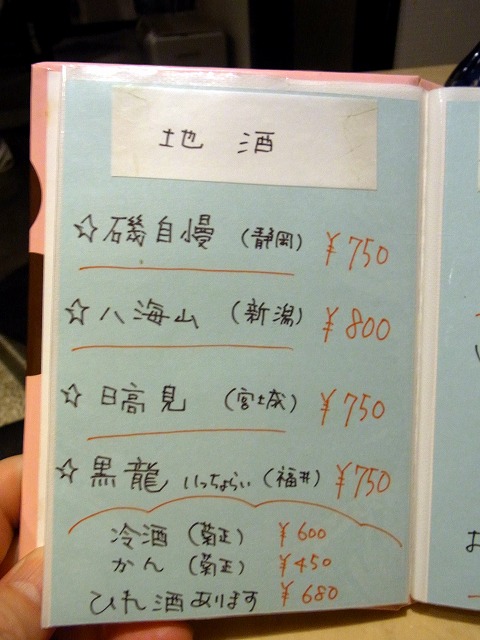 地酒
☆磯自慢（静岡）￥750
☆八海山（新潟）￥800
☆日高見（宮城）￥750
☆黒龍 いっちょらい（福井）￥750
冷酒（菊正）￥600
かん（菊正）￥450
ひれ酒あります ￥680
お